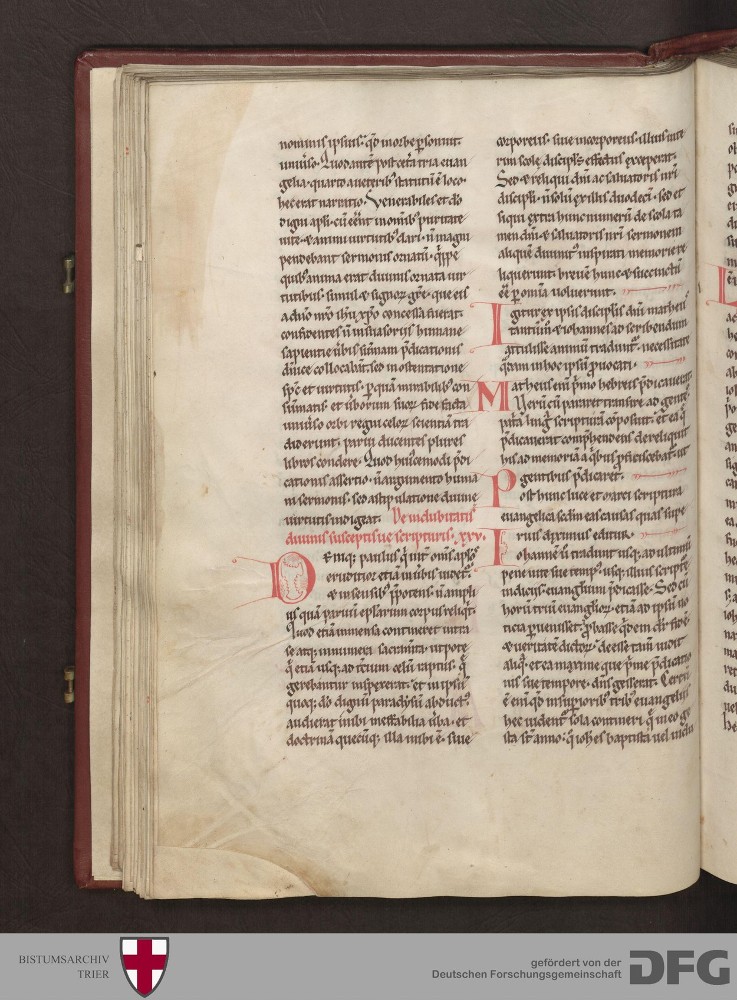 nominis ipsius. qđ in orbe ꝑsonuit
uniuerso. Quod autē post cetera tria euan
gelia. quarto a ueteribus statutū ē loco.
hec erat narratio. Venerabiles et dō
digni apłi. cū eēnt in omībus puritate
uite. & animi uirtutibus clari. ñ magni
pendebant sermonis ornatū. q̄ppe
quibus anima erat diuinis ornata uir
tutibus. simul & signorꝫ gr̄e. que eis
a dño nr̄o ihū xp̄o concessa fuerat.
confidentes ñ in suasoriis humane
sapientie ūbis sūmam p̄dicationis
diuine collocabant. sed in ostentatione
spc̄ et uirtutis. ꝑ quā mirabilibus con
sūmatis. et ūborum suorꝫ fide facta
uniuerso orbi regni celorꝫ scientiā tra
diderunt. parui ducentes plures
libros condere. Quod huiuscemodi p̄di
cationis assertio. ñ argumento huma
ni sermonis. sed astipulatione diuine
uirtutis indigeat. De indubitatis
diuinis susceptisue scripturis. xxv.
Deniq; paulus q̄ uincit om̄s apl̄os
eruditior etiā in ūbis uidetur.
& in sensibus p̄potens. ñ ampli
us quā paruū epl̄arum corpus reliqt̄.
Quod etiā inmensa contineret intra
se atq; innumera sacramta. utpote
q̄ etiā usq; ad tercium celū raptus. q̄
gerebantur inspexerat. et in ipsum
quoq; dō dignū paradysū abductus.
audierat inibi ineffabilia ūba. et
doctrinā quecūq; illa inibi ē. siue
corporeus. siue incorporeus. illius inte
rim scole discipl̄s effectus exceperat.
Sed & reliqui dn̄i ac saluatoris nr̄i
discipuli. ñ solū ex illis duodecī. sed et
siqui extra hunc numerū de scola ta
men dn̄i. & saluatoris nr̄i sermonem
aliquē diuinitus inspirati memorie re
liquerunt. breuē hunc & succinctū
eē ꝑ omnia uoluerunt.
Igitur ex ipsis discipl̄is dn̄i. matheus
tantū. & iohannes ad scribendum
appulisse animū traduntur. necessitate
q̄dam in hoc ipsū ꝓuocati.
Matheus enī p̄mo hebreis p̄dicauerat.
Verū cū pararet transire ad gentes.
patria lingua scripturā cōposuit. et ea q̄
p̄dicauerat comp̄hendens dereliquit
his ad memoriā a q̄bus ꝓficiscebatur. ut
gentibus p̄dicaret.
Post hunc luce et marci scriptura
euangelica sedm̄ eas causas quas supe
rius diximus editur.
Iohannē ū tradunt usq; ad ultimū
pene uite sue tempus. usq; illius scripture
indiciis euangelium p̄dicasse. Sed cū
horū triū euangeliorꝫ. etiā ad ipsū no
ticia ꝑuenisset. ꝓbasse q̄dem dr̄ fidē.
& ueritatē dictorꝫ. deesse tam̄ uidit
aliq. et ea maxime que p̄me p̄dicatio
nis sue tempore. dns̄ gesserat. Certū
ē enī. qđ in suꝑioribus tribus euangeliis
hec uidentur sola contineri. q̄ in eo ge
sta st̄ anno. q̄ ioh̄es baptista uel inclu
BISTUMSARCHIV
TRIER
gefördert von der
Deutschen Forschungsgemeinschaft
DFG